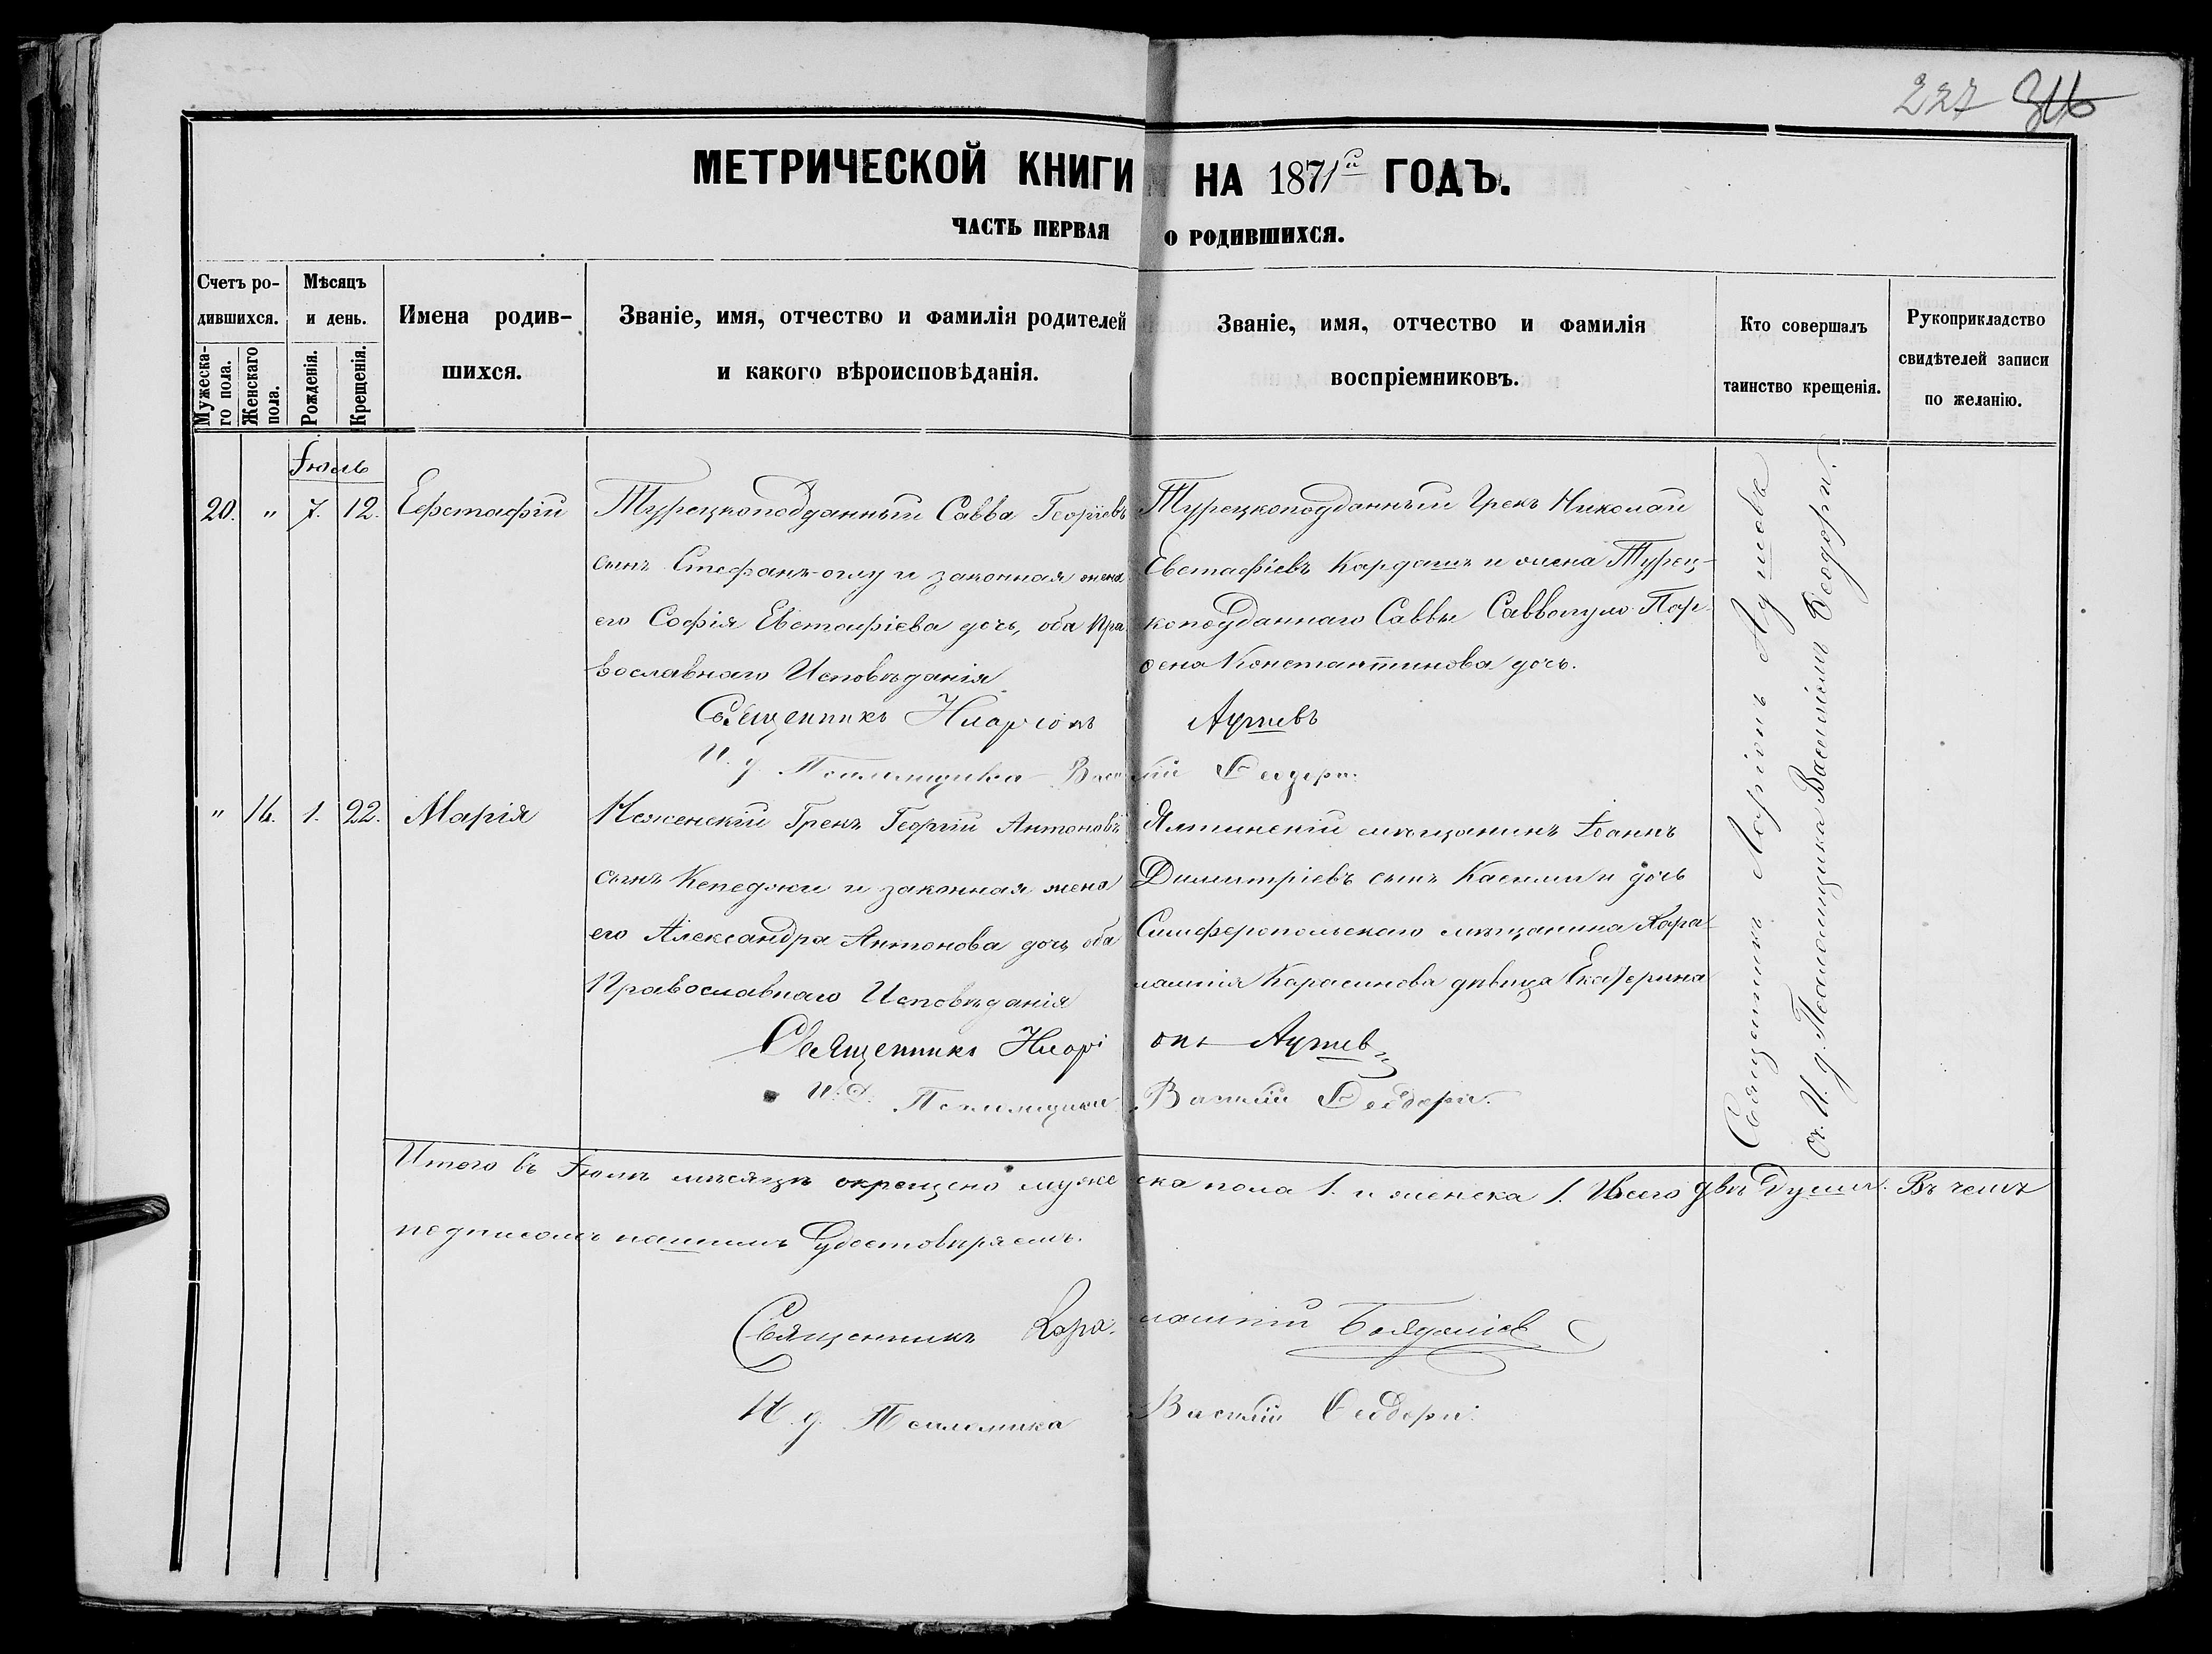 227 316
МЕТРИЧЕСКОЙ КНИГИ НА 1871й ГОДЪ.
ЧАСТЬ ПЕРВАЯ О РОДИВШИХСЯ.
Счетъ родившихся.
Мужескаго пола.
Женскаго пола.
Мѣсяцъ и день.
Рожденія.
Крещенія.
Имена родившихся.
Званіе, имя, отчество и фамилія родителей
и какого вѣроисповѣданія.
Званіе, имя, отчество и фамилія
воспріемниковъ.
Кто совершалъ
таинство крещенія.
Рукоприкладство
свидѣтелей записи
по желанію.
Іюль
20. " 7. 12. Ефстафій
Турецкоподданный Савва Георгіевъ
сынъ Стефанъ-оглу и законная жена
его Софія Евстафіева дочь, оба Пра
вославнаго Исповѣданія
Турецкоподданный Грекъ Николай
Евстафіевъ Кардашъ и жена Турец-
коподданнаго Саввы Саввопуло Пар-
ѳена Константинова дочь.
Священникъ
И. д. Псаломщика Василій Ѳеодори.
" 14. 1. 22. Марія
Неженскій Грекъ Георгій Антоновъ
сынъ Кепеджи и законная жена
его Александра Антонова дочь, оба
Православнаго Исповѣданія
Ялтинскій мѣщанинъ Іоаннъ
Димитріевъ сынъ и дочь
Симферопольскаго мѣщанина Хара-
лампія Карасинова дѣвица Екаѳерина
Священникъ
И. Д. Псаломщика Василій Ѳеодори.
Священникъ
И. д. Псаломщика Василіемъ Ѳеодори.
Итого въ Іюлѣ мѣсяцѣ окрещено мужеска пола 1. и женска 1. Всего двѣ души. Въ чемъ
подписомъ нашимъ Удостовѣряемъ.
Священникъ Харалампій
И. д. Псаломщика Василій Ѳеодори.